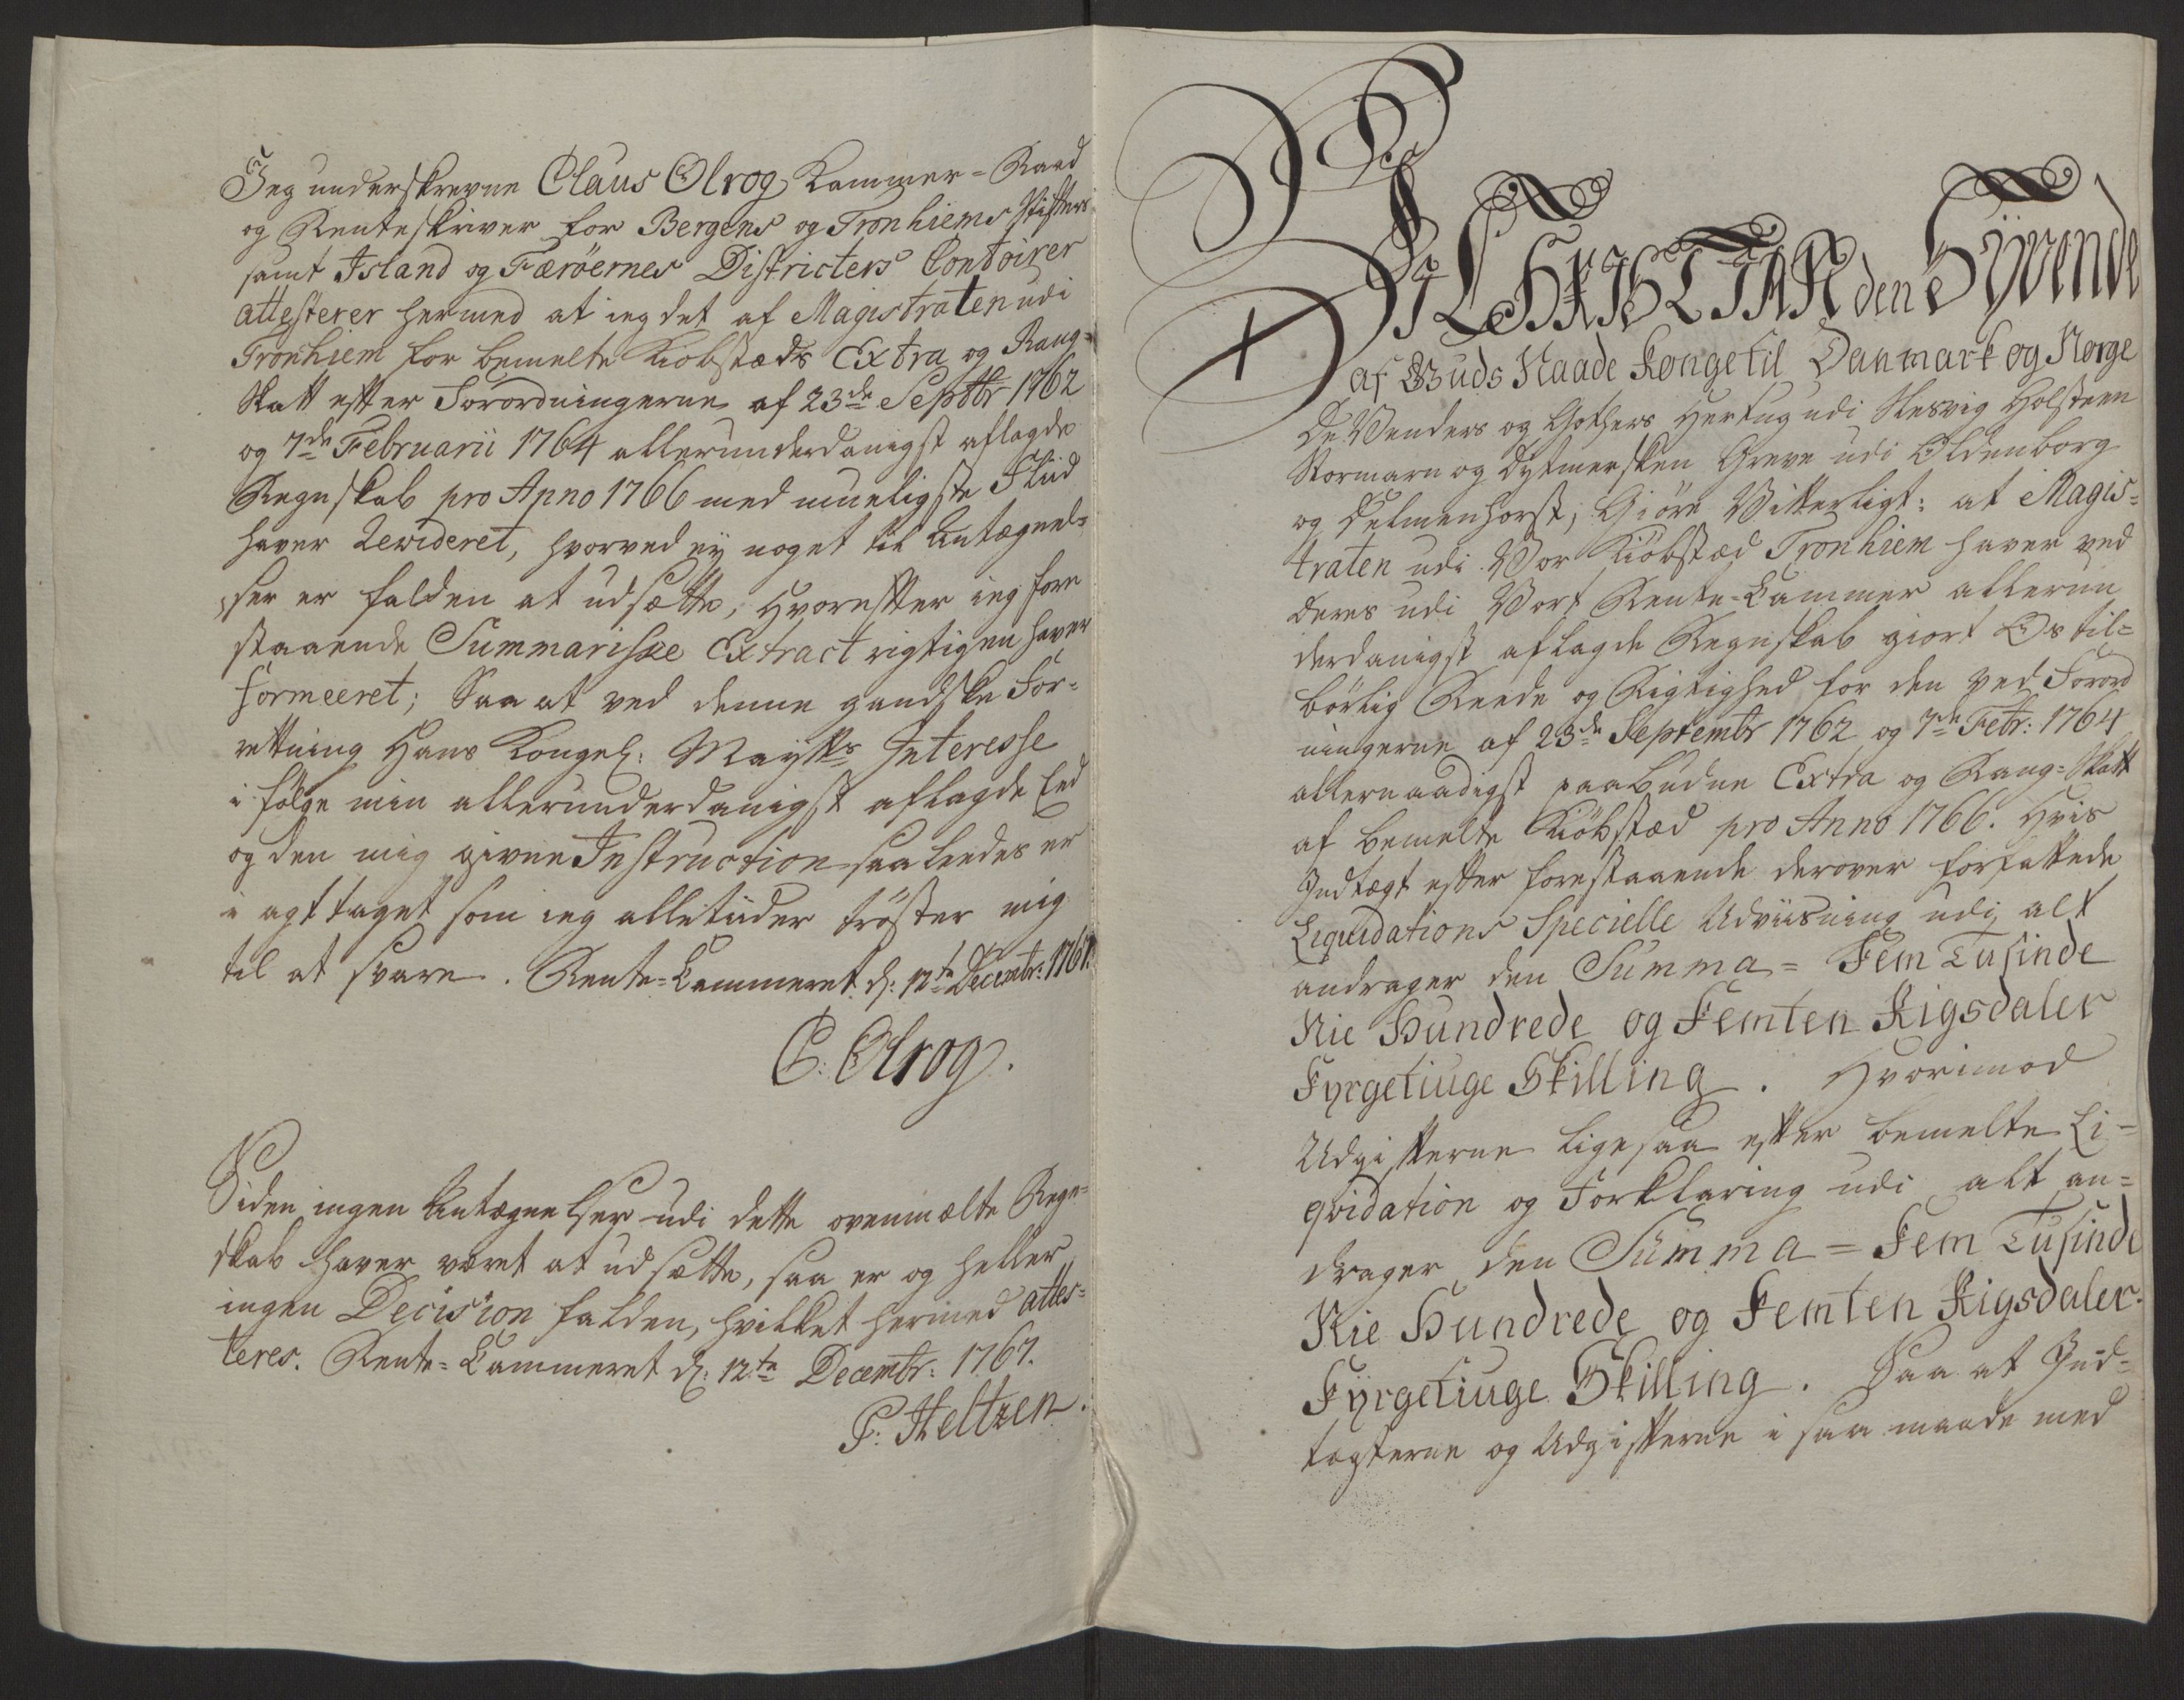 Jeg underskrevne Claus Olrog Kammer-Raad
og Renteskriver for Bergens og Tronhiems Stifters
samt Island og Færöernes Districters Contoirer
attesterer hermed at ieg det af Magistraten udi
Tronhiem for bemelte Kiobstæds Extra og Rang-
Skatt efter Forordningerne af 23de Septbr 1762
og 7de Februarii 1764 allerunderdanigst aflagde
Regnskab pro Anno 1766 med mueligste Fliid
haver Rewideret, hvorved ey noget til Antægnel-
ser er falden at udsætte, hvorefter ieg fore
staaende Summariske Extract rigtigen haver
formeeret; Saa at ved denne gandske For-
rettning Hans Kongel: Maysts Interesse
i fölge min allerunderdanigst aflagde Eed
og den mig givne Instruction saaleedes er
i agt taget som ieg alletiider tröster mig
til at svare. Rente-Cammeret d: 12te Decembr: 1767.
C: Olrog.
Siden ingen Antægnelser udi dette ovenmælte Regn-
skab haver været at udsætte, saa er og heller
ingen Decision falden, hvilket hermed attes-
teres. Rente-Cammeret d: 12te Decembr: 1767.
P: Heltzen.
Vi CHRISTIAN den Syvende
af Guds Naade Konge til Danmark og Norge
De Wenders og Gothers Hertug udi Slesvig Holsteen
Stormarn og Dytmersken Greve udi Oldenborg
og Delmenhorst; Giöre Vitterligt: at Magis-
traten udi Vor Kiöbstæd Tronhiem haver ved
deres udi Vort Rente-Cammer allerun
derdanigst aflagde Regnskab giort Os til-
börlig Reede og Rigtighed for den ved Forord
ningerne af 23de Septembr 1762 og 7de Febr: 1764
allernaadigst paabudne Extra og Rang-Skatt
af bemelte Kiöbstæd pro Anno 1766. Hvis
Indtægt efter forestaaende derover forfattede
Liquidations Specielle Udviisning udi alt
andrager den Summa = Fem Tusinde
Nie Hundrede og Femten Rigsdaler
Fyrgetiuge Skilling. Hvorimod
Udgifterne ligesaa efter bemelte Li-
qvidation og Forklaring udi alt an-
drager den Summa = Fem Tusinde
Nie Hundrede og Femten Rigsdaler
Fyrgetiuge Skilling. Saa at Ind-
tægterne og Udgifterne i saa maade med